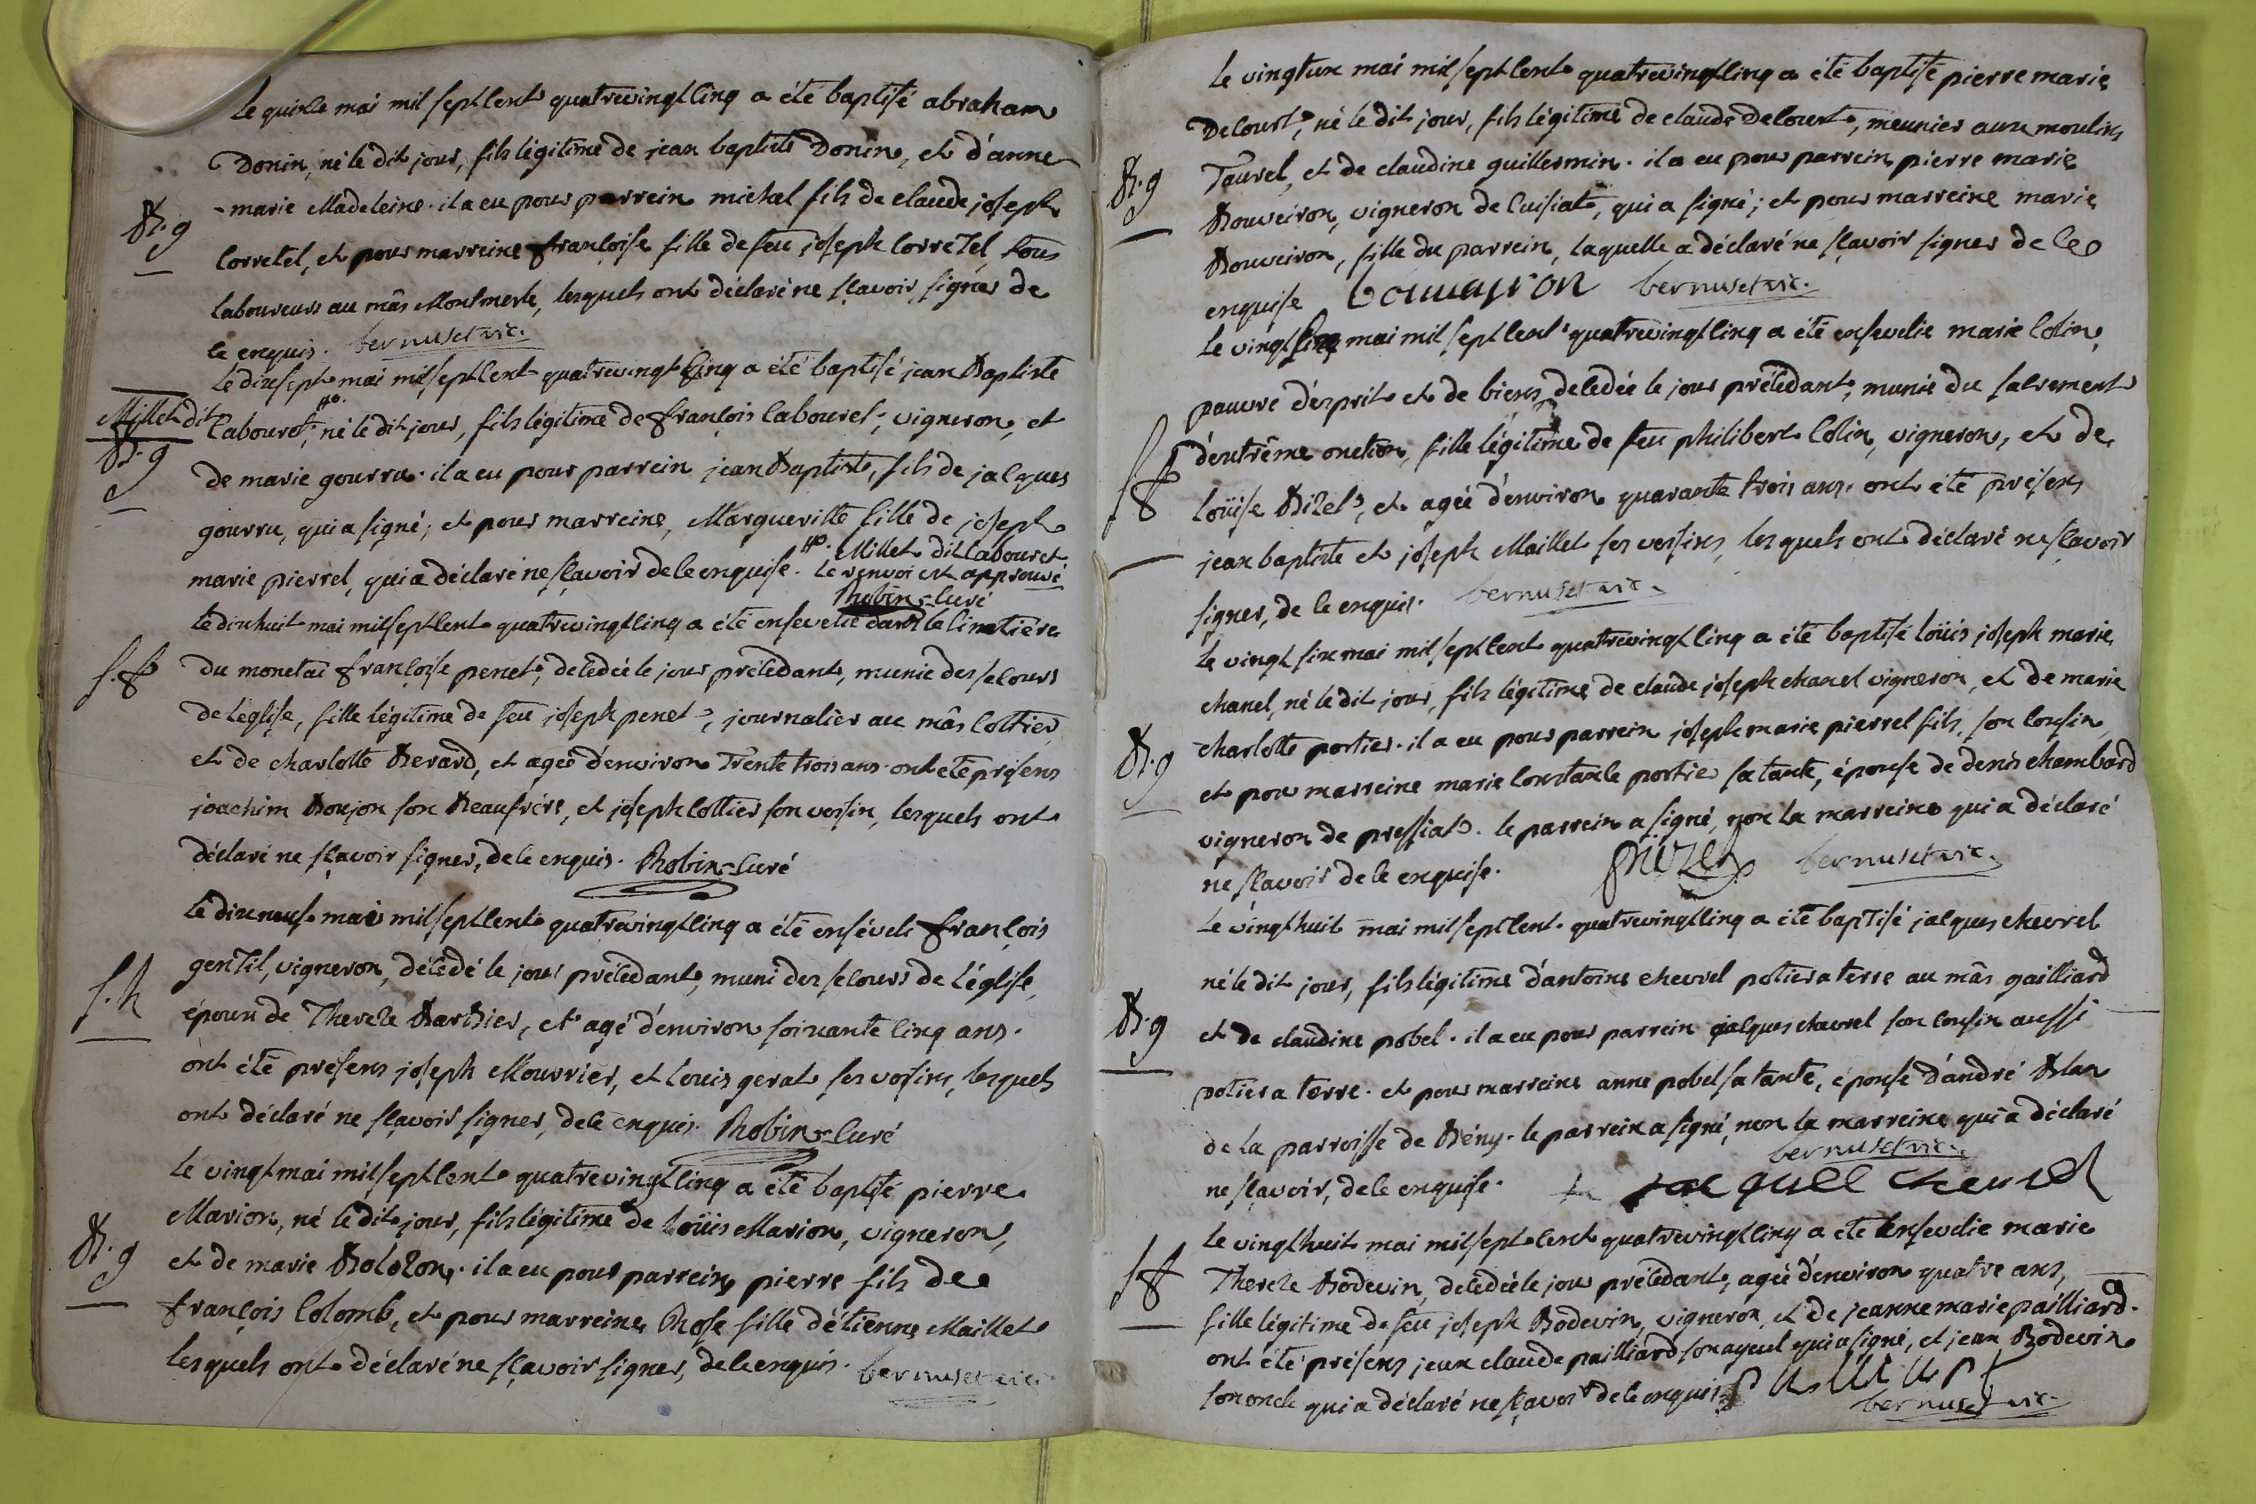 Le quinze mai mil sept cent quatrevingt cinq a été baptisé abraham
Donin, né le dit jour, fils légitime de jean baptiste Donin, et d'anne
B. g
-marie Madeleine. il a eu pour parrein michel fils de claude joseph
Corretel, et pour marreine françoise fille de feu joseph Corretel, tous
laboureurs au mâs Montmerle, lesquels ont déclaré ne sçavoir signer de
ce enquis. bernuset vic.
Le dixsept mai mil sept cent quatrevingt cinq a été baptisé jean Baptiste
Millet dit
Labouret, né le dit jour, fils légitime de françois Labouret, vigneron, et
B. g
de marie gourru. il a eu pour parrein jean Baptiste, fils de jacques
gourru, qui a signé; et pour marreine, Margueritte fille de joseph
Millet dit Labouret
marie pierrel, qui a déclaré ne sçavoir de ce enquise. Le renvoi est approuvé
Robin curé
Le dixhuit mai mil sept cent quatrevingt cinq a été ensevelie dans le cimetière
f. f
du monetai françoise penet, décédée le jour précédant, munie des secours
de l'église, fille légitime de feu joseph penet, journalier au mâs Cottier,
et de charlotte Berard, et agée d'environ Trente trois ans. ont été présens
joachim Boujon son Beaufrère, et joseph Cottier son voisin, lesquels ont
déclaré ne sçavoir signer, de ce enquis. Robin curé
Le dixneuf mai mil sept cent quatrevingt cinq a été enséveli françois
f. h
gentil, vigneron, décédé le jour précédant, muni des secours de l'église,
époux de Therese Barbier, et agé d'environ soixante cinq ans.
ont été présens joseph Mourrier, et Louis gerat ses voisins, lesquels
ont déclaré ne sçavoir signer, de ce enquis. Robin curé
Le vingt mai mil sept cent quatrevingt cinq a été baptisé pierre
Marion, né le dit jour, fils légitime de Loüis Marion, vigneron,
B. g
et de marie Bolozon. il a eu pour parrein pierre fils de
françois Colomb, et pour marreine Rose fille d'étienne Maillet
lesquels ont déclaré ne sçavoir signer, de ce enquis. bernuset vic.
Le vingtun mai mil sept cent quatrevingt cinq a été baptisé pierre marie
Decourt, né le dit jour, fils légitime de claude Decourt, meunier aux moulins
B. g
Taurel, et de claudine guillermin. il a eu pour parrein pierre marie
Bouveiron, vigneron de Cuisiat, qui a signé; et pour marreine marie
Bouveiron, fille du parrein, laquelle a déclaré ne sçavoir signer de ce
enquise bouvayron bernuset vic.
Le vingt cinq mai mil sept cent quatrevingt cinq a été ensevelie marie Colin,
pauvre d'esprit et de biens, décédée le jour précédant, munie du sacrement
f f
d'extrême onction, fille légitime de feu philibert Colin, vigneron, et de
Loüise Bizet, et agée d'environ quarante trois ans. ont été présens
jean baptiste et joseph Maillet ses voisins, lesquels ont déclaré ne sçavoir
signer, de ce enquis. bernuset vic.
Le vingt six mai mil sept cent quatrevingt cinq a été baptisé Loüis joseph marie
chanel, né le dit jour, fils légitime de claude joseph chanel vigneron, et de marie
B. g
charlotte portier. il a eu pour parrein joseph marie pierrel fils, son cousin,
et pour marreine marie Constance portier sa tante, épouse de denis chambard
vigneron de pressiat. le parrein a signé, non la marreine qui a déclaré
ne sçavoir de ce enquise. bernuset vic.
Le vingt huit mai mil sept cent quatrevingt cinq a été baptisé jacques chevrel
né le dit jour, fils légitime d'antoine chevrel potier a terre au mâs gailliard
B. g
et de claudine pobel. il a eu pour parrein jacques chevrel son cousin aussi
potier a terre. et pour marreine anne pobel sa tante, épouse d'andré Blan
de la parroisse de Bény. le parrein a signé, non la marreine qui a déclaré
bernuset vic.
ne sçavoir, de ce enquise. jacque chevrel
Le vingt huit mai mil sept cent quatrevingt cinq a été ensevelie marie
f f
Therese Bodevin, décédée le jour précédant, agée d'environ quatre ans,
fille légitime de feu joseph Bodevin, vigneron, et de jeanne marie pailliard.
ont été présens jean claude pailliard son ayeul qui a signé, et jean Bodevin
son oncle qui a déclaré ne sçavoir de ce enquis.
bernuset vic.